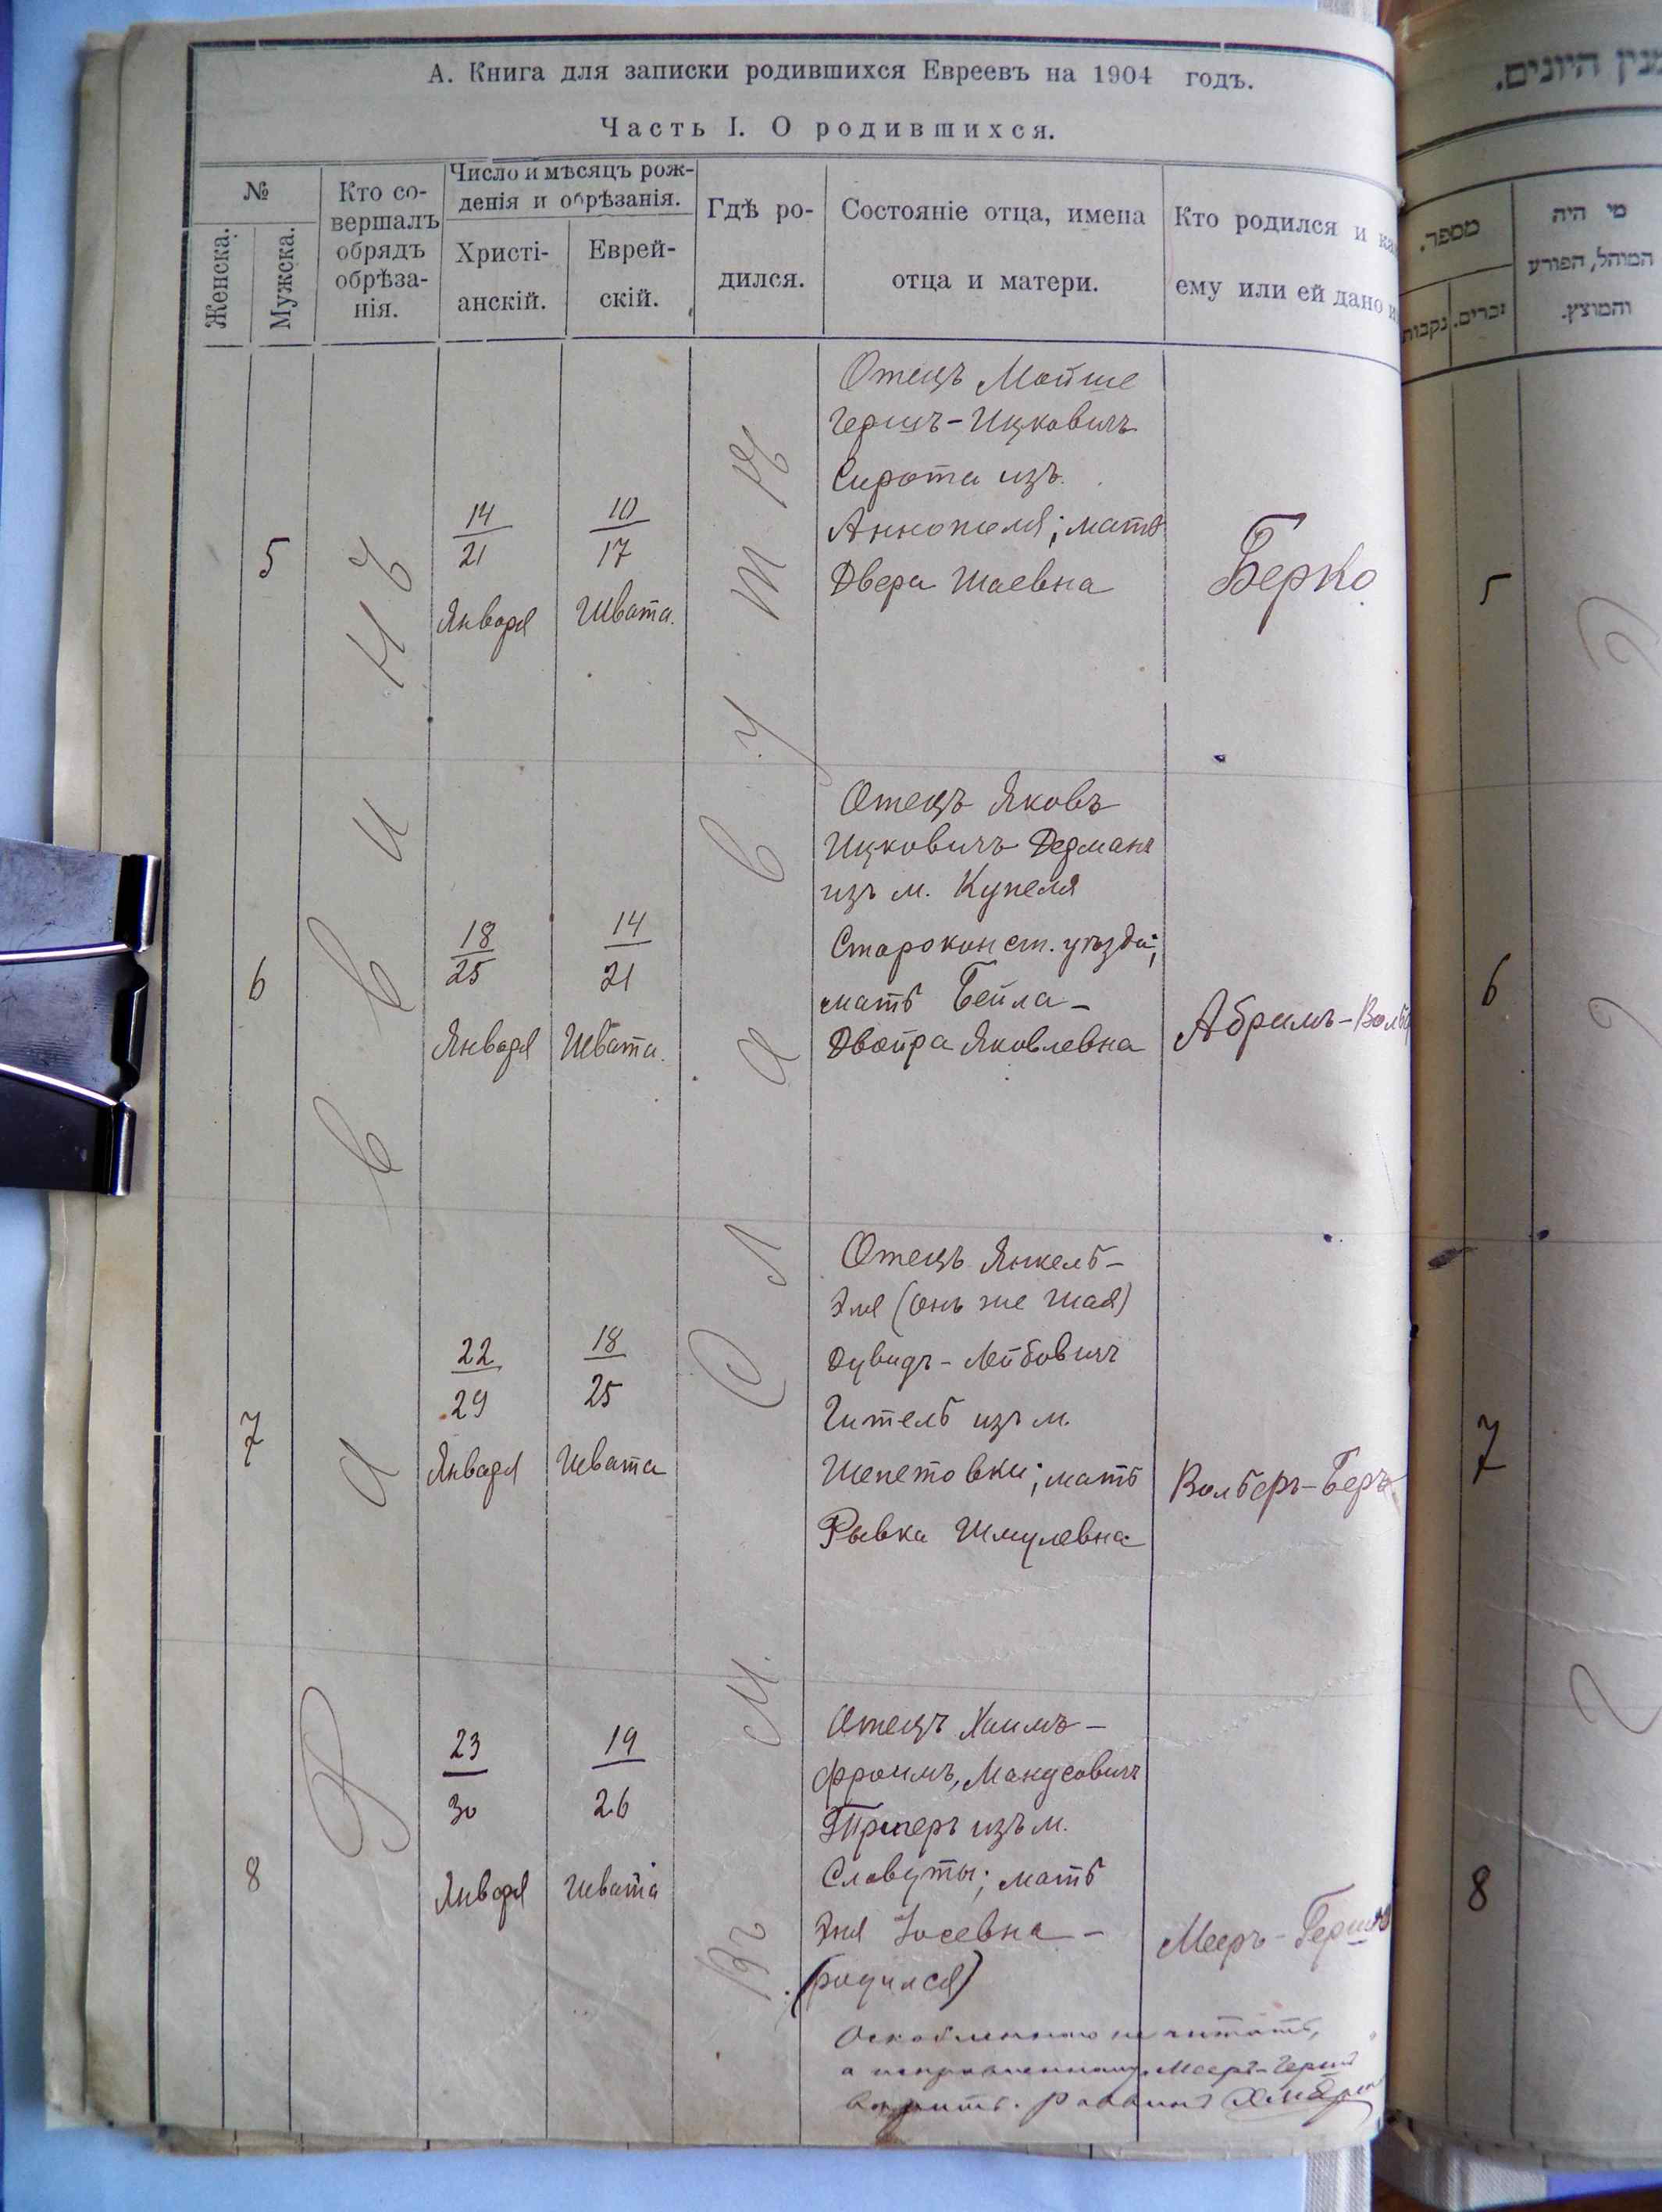 А. Книга для записки родившихся Евреевъ на 1904 годъ.
Часть I. О родившихся.
№
Женска.
Мужска.
Кто со-
вершалъ
обрядъ
обрѣза-
нія.
Число и мѣсяцъ рож-
денія и обрѣзанія.
Христі-
анскій.
Еврей-
скій.
Гдѣ ро-
дился.
Состояніе отца, имена
отца и матери.
Кто родился и ка
ему или ей дано и
Раввинъ
Въ м. Славутѣ
5
14
21
Января
10
17
Швата.
Отецъ Мойше
Гершъ-Ицковичъ
Сирота изъ
Аннополя; мать
Двера Шаевна
Берко
6
18
25
Января
14
21
Швата.
Отецъ Яковъ
Ицковичъ Дерманъ
изъ м. Купеля
Староконст. уѣзда;
мать Бейла-
Двойра Яковлевна
Абрамъ-Воль
7
22
29
Января
18
25
Швата
Отецъ Янкель-
Эля (онъ же Шая)
Дувидъ-Лейбовичъ
Гитель изъ м.
Шепетовки; мать
Рывка Шмулевна
Вольберъ-Беръ
8
23
30
Января
19
26
Швата
Отецъ Хаимъ-
Фроимъ, Манусовичъ
изъ м.
Славуты; мать
Эня Іосевна -
(родился)
Мееръ-Гершъ
не читать,
а исправленному Мееръ-Гершъ
вѣрить. Раввинъ
מנין היונים.
מספר.
נקבות
זכרים.
מי היה
המוהל, הפורע
והמוצץ.
5
6
7
8